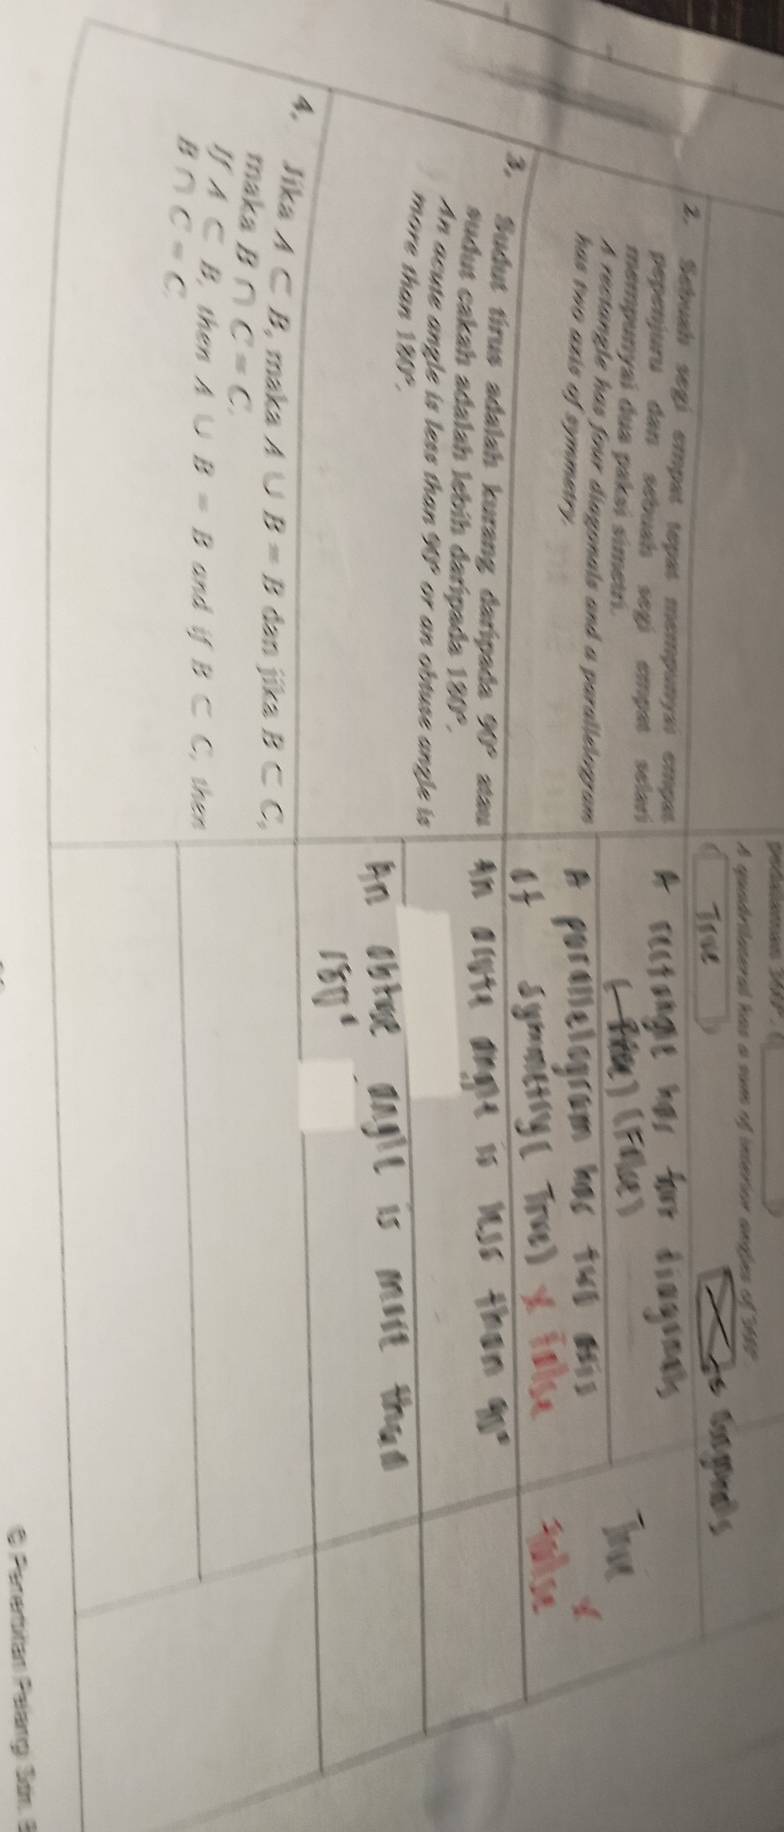 A quadrilateral has a sum of interior angles of 360°
True
2 diagonals
2. Sebuah segi empat tepat mempunyai empat
pepenjuru dan sebuah segi empat selari
mempunyai dua paksi simetri.
A rectangle has four diagonals and a parallelogram
has two axis of symmetry.
A rectangle has four diagonals
(True) (False)
A parallelogram has two axis
of symmetry( True) x False
True
x
False
3. Sudut tirus adalah kurang daripada 90° atau
sudut cakah adalah lebih daripada 180°.
An acute angle is less than 90° or an obtuse angle is
more than 180°.
An acute angle is less than 90°
An obtuse angle is more than
180°
4. Jika A ⊂ B, maka A ∪ B = B dan jika B ⊂ C,
maka B ∩ C = C.
If A ⊂ B, then A ∪ B = B and if B ⊂ C, then
B ∩ C = C.
© Penerbitan Pelangi Sdn. B